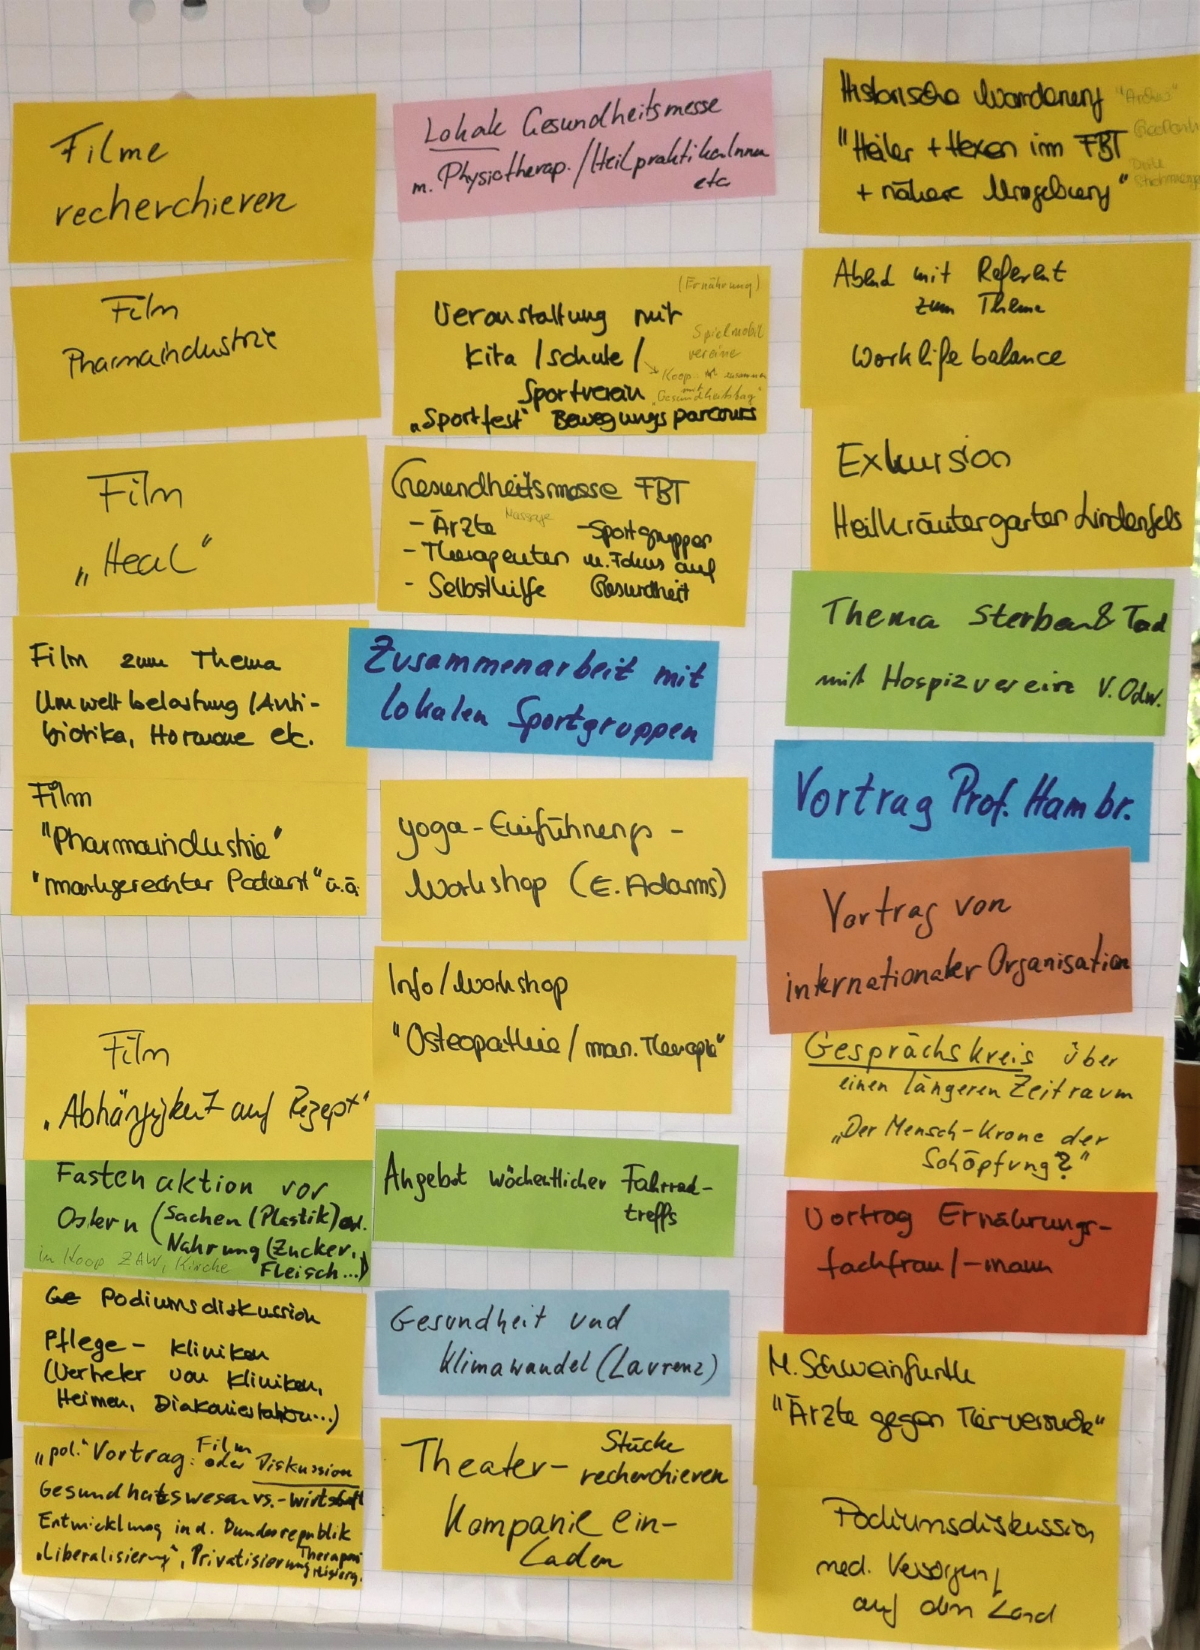 Filme
recherchieren
Film
Pharmaindustrie
Film
„Heal"
Film zum Thema
Umweltbelastung/Anti-
biotika, Hormone etc.
Film
"Pharmaindustrie"
"marktgerechter Patient" u.ä.
Film
„Abhängigkeit auf Rezept"
Fastenaktion vor
Ostern (Sachen (Plastik) od.
Nahrung (Zucker,
Fleisch...)
in Koop ZAW, Kirche
Podiumsdiskussion
Pflege - Kliniken
(Vertreter von Kliniken,
Heimen, Diakoniestation...)
„pol." Vortrag: Film
oder Diskussion
Gesundheitswesen vs. -wirtschaft
Entwicklung in d. Bundesrepublik
„Liberalisierung", Privatisierung
Lokale Gesundheitsmesse
m. Physiotherap./HeilpraktikerInnen
etc
(Ernährung)
Veranstaltung mit
Kita /Schule/
Sportverein
„Sportfest" Bewegungsparcours
Spielmobil
vereine
Koop zusammen
mit
"Gesundheitstag"
Gesundheitsmesse FBT
- Ärzte Massage - Sportgruppen
- Therapeuten m. Fokus auf
- Selbsthilfe Gesundheit
Zusammenarbeit mit
lokalen Sportgruppen
Yoga-Einführungs-
Workshop (E. Adams)
Info/Workshop
"Osteopathie/man. Therapie"
Angebot wöchentlicher Fahrrad-
treffs
Gesundheit und
Klimawandel (Laurenz)
Theater- Stücke
recherchieren
Kompanie ein-
laden
Historische Wanderung
"Heiler + Hexen im FBT
+ nähere Umgebung"
Abend mit Referent
zum Thema
Worklife balance
Exkursion
Heilkräutergarten Lindenfels
Thema Sterben & Tod
mit Hospizverein V. Odw.
Vortrag Prof. Hambr.
Vortrag von
internationaler Organisation
Gesprächskreis über
einen längeren Zeitraum
„Der Mensch-Krone der
Schöpfung?"
Vortrag Ernährungs-
fachfrau/-mann
M. Schweinfurth
"Ärzte gegen Tierversuche"
Podiumsdiskussion
med. Versorgung
auf dem Land